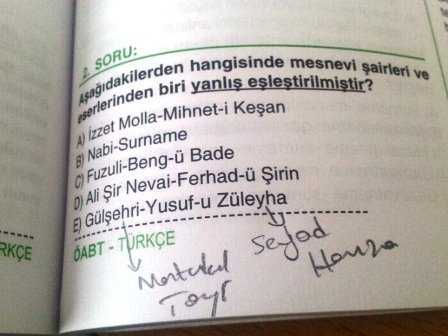 2. SORU:
Aşağıdakilerden hangisinde mesnevi şairleri ve
eserlerinden biri yanlış eşleştirilmiştir?
A) İzzet Molla-Mihnet-i Keşan
B) Nabi-Surname
C) Fuzuli-Beng-ü Bade
D) Ali Şir Nevai-Ferhad-ü Şirin
E) Gülşehri-Yusuf-u Züleyha
RKÇE
ÖABT - TÜRKÇE
Seyyad
Hamza
Mantukul
Tayr